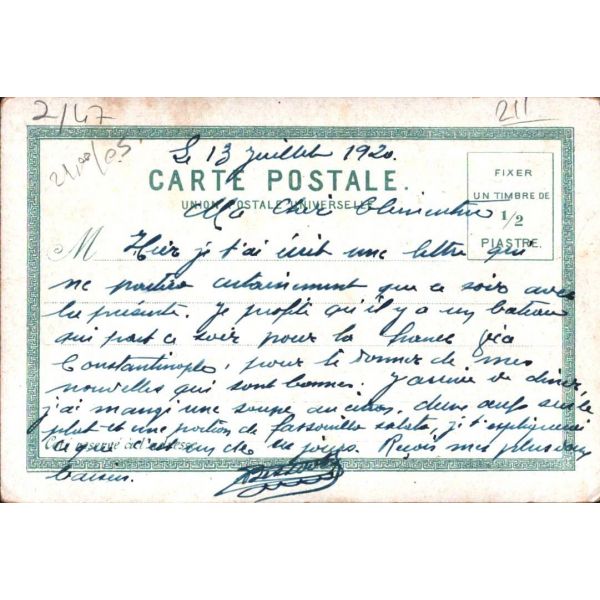 2/47
211
21,00/05
Le 13 Juillet 1920.
FIXER
UN TIMBRE DE
1/2
PIASTRE.
CARTE POSTALE.
UNION POSTALE UNIVERSELLE
Ma chère Clémentine
M
Hier je t'ai écrit une lettre qui
ne partira certainement que ce soir avec
la présente. Je profite qu'il y a un bateau
qui part ce soir pour la France via
Constantinople, pour te donner de mes
nouvelles qui sont bonnes. J'arrive de dîner,
j'ai mangé une soupe au citron, deux œufs sur le
plat et une portion de fassouilla salata, je t'expliquerai
Côté réservé à l'adresse
ce que c'est un de ces jours. Reçois mes plus doux
baisers.